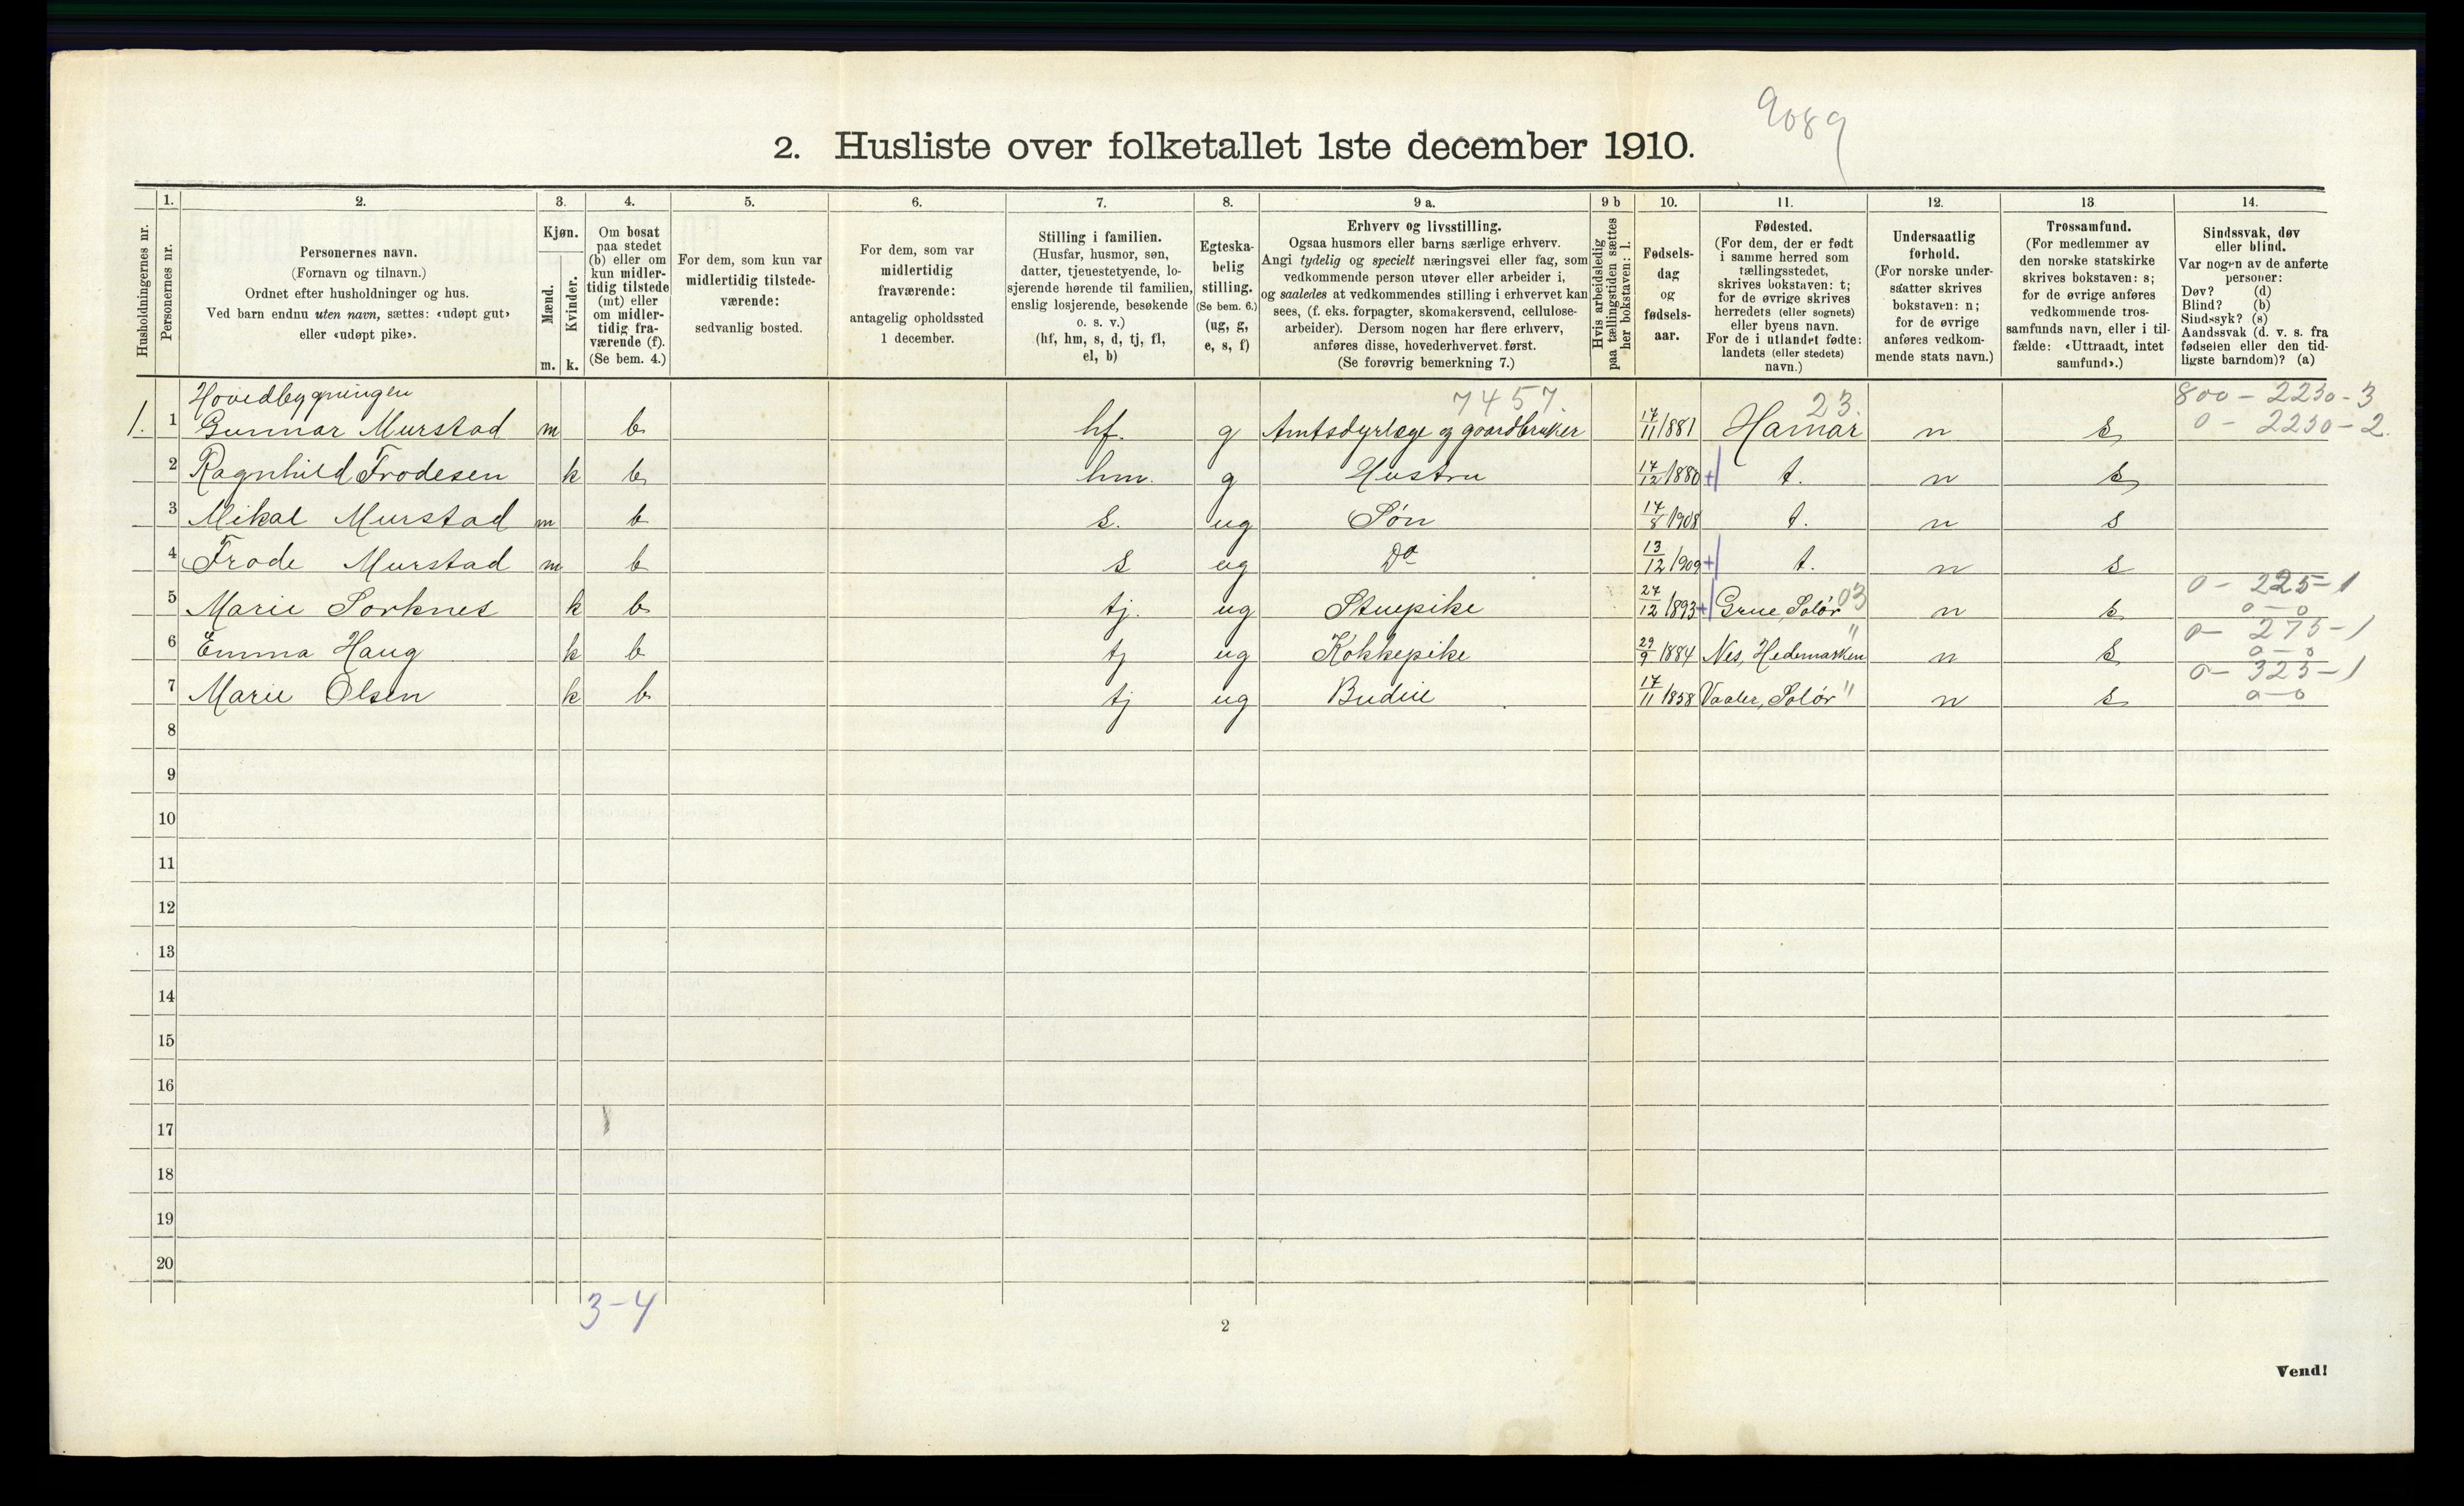 9089
2. Husliste over folketallet 1ste december 1910.
Husholdningernes nr.
1.
Personernes nr.
2.
Personernes navn.
(Fornavn og tilnavn.)
Ordnet efter husholdninger og hus.
Ved barn endnu uten navn, sættes: «udøpt gut»
eller «udøpt pike».
3.
Kjøn.
Mænd.
Kvinder.
m. k.
4.
Om bosat
paa stedet
(b) eller om
kun midler-
tidig tilstede
(mt) eller
om midler-
tidig fra-
værende (f).
(Se bem. 4.)
5.
For dem, som kun var
midlertidig tilstede-
værende:
sedvanlig bosted.
6.
For dem, som var
midlertidig
fraværende:
antagelig opholdssted
1 december.
7.
Stilling i familien.
(Husfar, husmor, søn,
datter, tjenestetyende, lo-
sjerende hørende til familien,
enslig losjerende, besøkende
o. s. v.)
(hf, hm, s, d, tj, fl,
el, b)
8.
Egteska-
belig
stilling.
(Se bem. 6.)
(ug, g,
e, s, f)
9 a.
Erhverv og livsstilling.
Ogsaa husmors eller barns særlige erhverv.
Angi tydelig og specielt næringsvei eller fag, som
vedkommende person utøver eller arbeider i,
og saaledes at vedkommendes stilling i erhvervet kan
sees, (f. eks. forpagter, skomakersvend, cellulose-
arbeider). Dersom nogen har flere erhverv,
anføres disse, hovederhvervet først.
(Se forøvrig bemerkning 7.)
9 b
Hvis arbeidsledig
paa tællingstiden sættes
her bokstaven: l.
10.
Fødsels-
dag
og
fødsels-
aar.
11.
Fødested.
(For dem, der er født
i samme herred som
tællingsstedet,
skrives bokstaven: t;
for de øvrige skrives
herredets (eller sognets)
eller byens navn.
For de i utlandet fødte:
landets (eller stedets)
navn.)
12.
Undersaatlig
forhold.
(For norske under-
saatter skrives
bokstaven: n;
for de øvrige
anføres vedkom-
mende stats navn.)
13
Trossamfund.
(For medlemmer av
den norske statskirke
skrives bokstaven: s;
for de øvrige anføres
vedkommende tros-
samfunds navn, eller i til-
fælde: «Uttraadt, intet
samfund».)
14.
Sindssvak, døv
eller blind.
Var nogen av de anførte
personer:
Døv? (d)
Blind? (b)
Sindssyk? (s)
Aandssvak (d. v. s. fra
fødselen eller den tid-
ligste barndom)? (a)
Hovedbygningen 7457 23. 800 - 2250 - 3
1. 1 Gunnar Murstad m b hf. g Amtsdyrlæge og gaardbruker 17/11 1881 Hamar n s 0 - 2250 - 2.
2 Ragnhild Frodesen k b hm. g Hustru 17/12 1880 + t. n s
3 Mikal Murstad m b s. ug Søn 17/8 1908 t. n s
4 Frode Murstad m b s ug Do 13/12 1909 + t. n s
0 - 225 - 1
5 Marie Sorknes k b tj. ug Stuepike 27/12 1893 + Grue, Solør 03 n s 0 - 0
0 - 275 - 1
6 Emma Haug k b tj ug Kokkepike 29/9 1884 Nes, Hedemarken " n s 0 - 0
0 - 325 - 1
7 Marie Olsen k b tj ug Budeie 17/11 1858 Vaaler, Solør " n s 0 - 0
8
9
10
11
12
13
14
15
16
17
18
19
20
3-4
2
Vend!